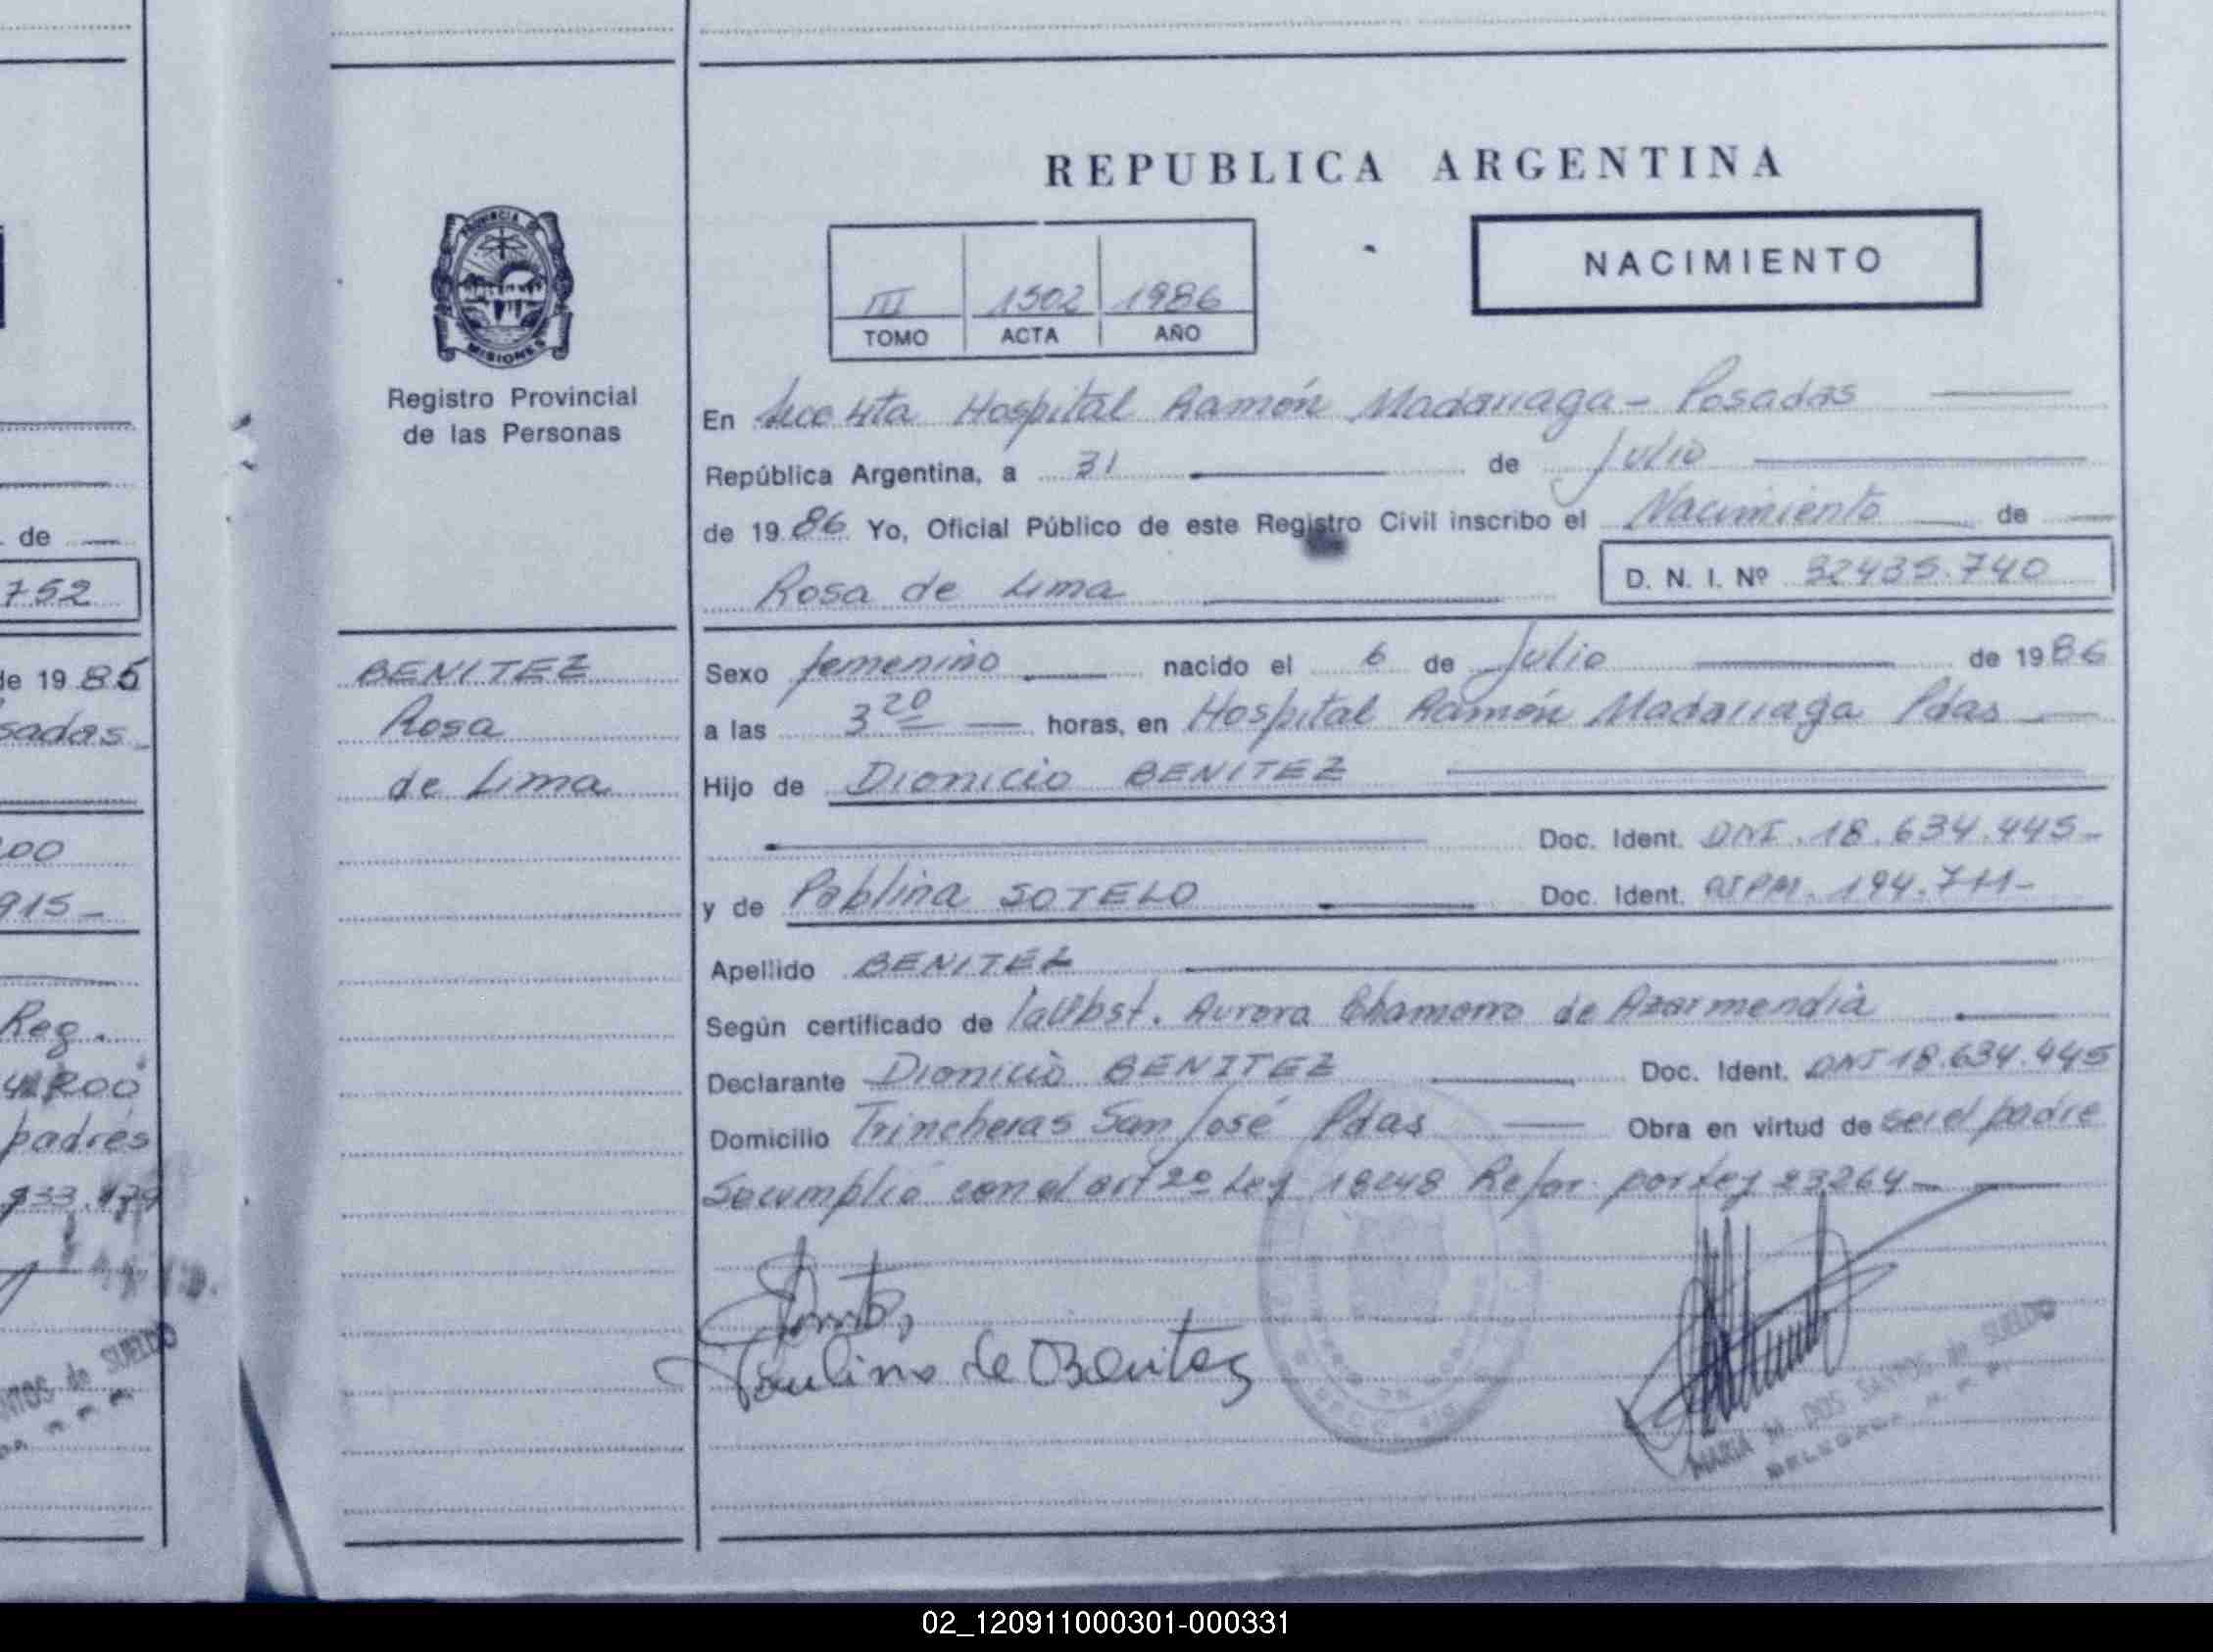 REPUBLICA ARGENTINA
PROVINCIA DE
MISIONES
Registro Provincial
de las Personas
NACIMIENTO
III 1502 1986
TOMO ACTA AÑO
En Secc 4ta Hospital Ramón Madariaga - Posadas
República Argentina, a 31 de Julio
de 1986 Yo, Oficial Público de este Registro Civil inscribo el Nacimiento de
Rosa de Lima
D. N. I. Nº 32435.740
BENITEZ
Rosa
de Lima
Sexo femenino nacido el 6 de Julio de 1986
a las 3 20 horas, en Hospital Ramón Madariaga Pdas
Hijo de Dionicio BENITEZ
Doc. Ident. DNI. 18.634.445-
y de Pablina SOTELO Doc. Ident. 194.711-
Apellido BENITEZ
Según certificado de la Obst. Aurora Chamorro de Azarmendia
Declarante Dionicio BENITEZ Doc. Ident. DNI 18.634.445
Domicilio Trincheras San José Pdas Obra en virtud de ser el padre
Se cumplió con el art 2º Ley 18248 Refor. por Ley 23264-
de Benitez
MARIA M. DOS SANTOS de SUELDO
de
752
de 1985
sadas
00
915-
Reg.
padres
de SUELDO
02_120911000301-000331